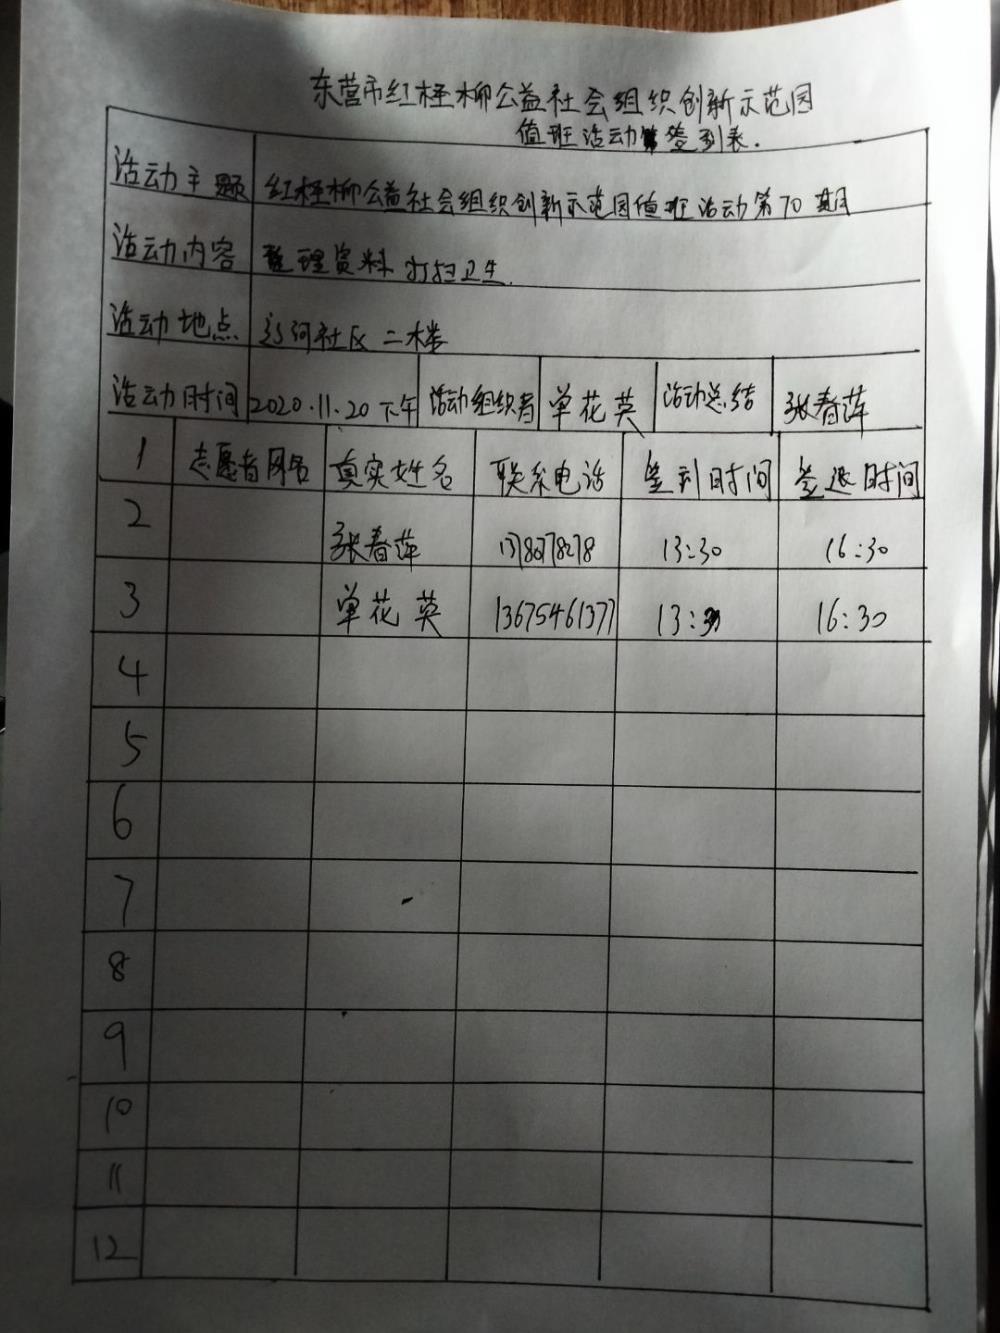 东营市红柽柳公益社会组织创新示范园
值班活动签到表.
活动主题 红柽柳公益社会组织创新示范园值班活动第70期
活动内容 整理资料 打扫卫生.
活动地点 河社区二楼
活动时间 2020.11.20下午 活动组织者 单花英 活动总结 张春萍
1 志愿者网名 真实姓名 联系电话 签到时间 签退时间
2 张春萍 13:30 16:30
3 单花英 13675461377 13:30 16:30
4
5
6
7
8
9
10
11
12